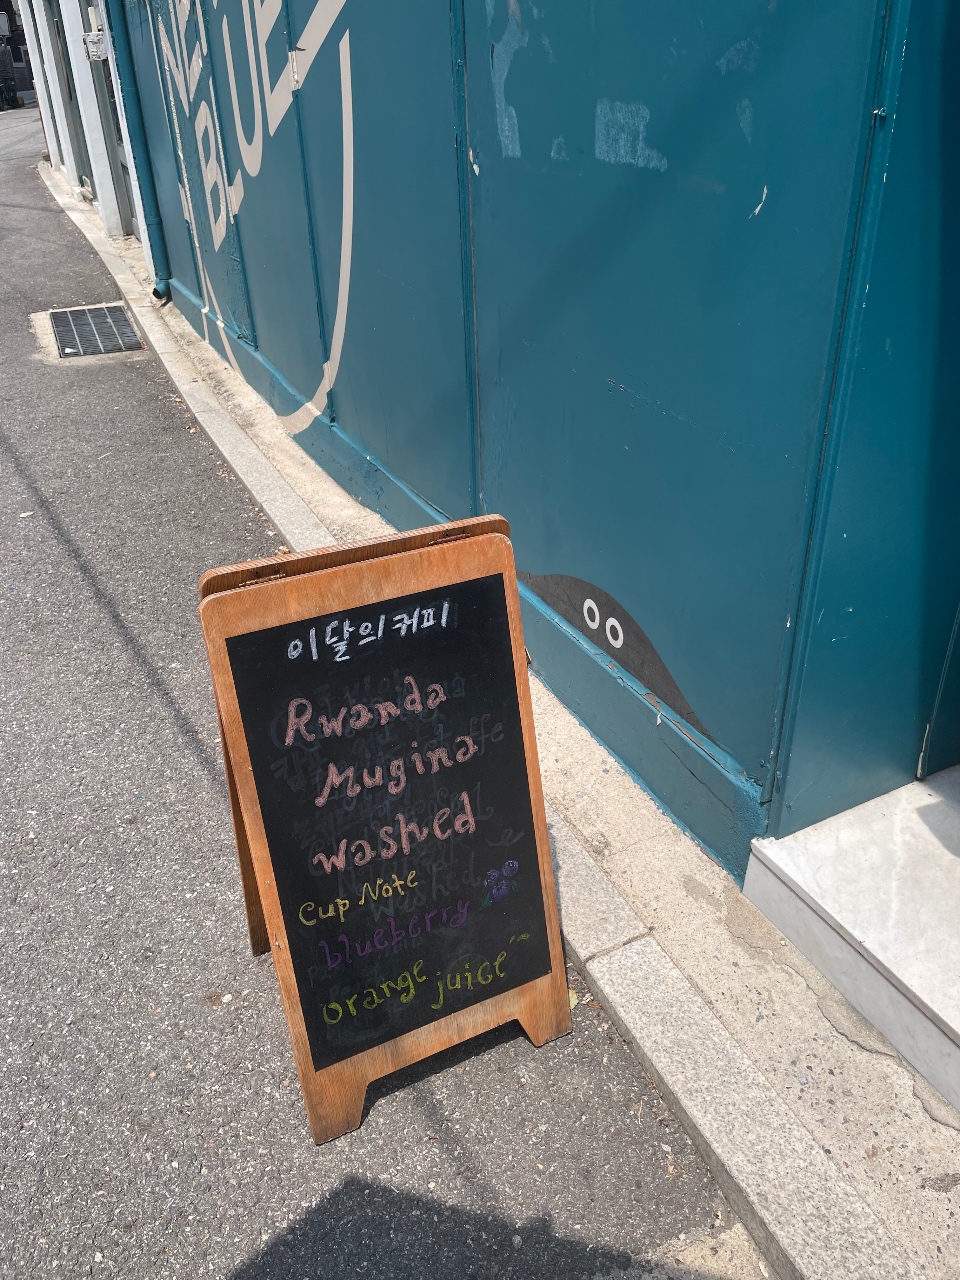 BLUE
이달의 커피
Rwanda
Mugina
washed
Cup Note
blueberry
orange juice